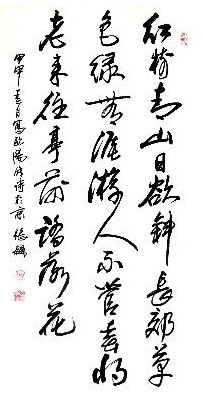 红树青山日欲斜长郊草
色绿无涯游人不管春将
老来往亭前踏落花
甲申春月写欧阳修诗于京